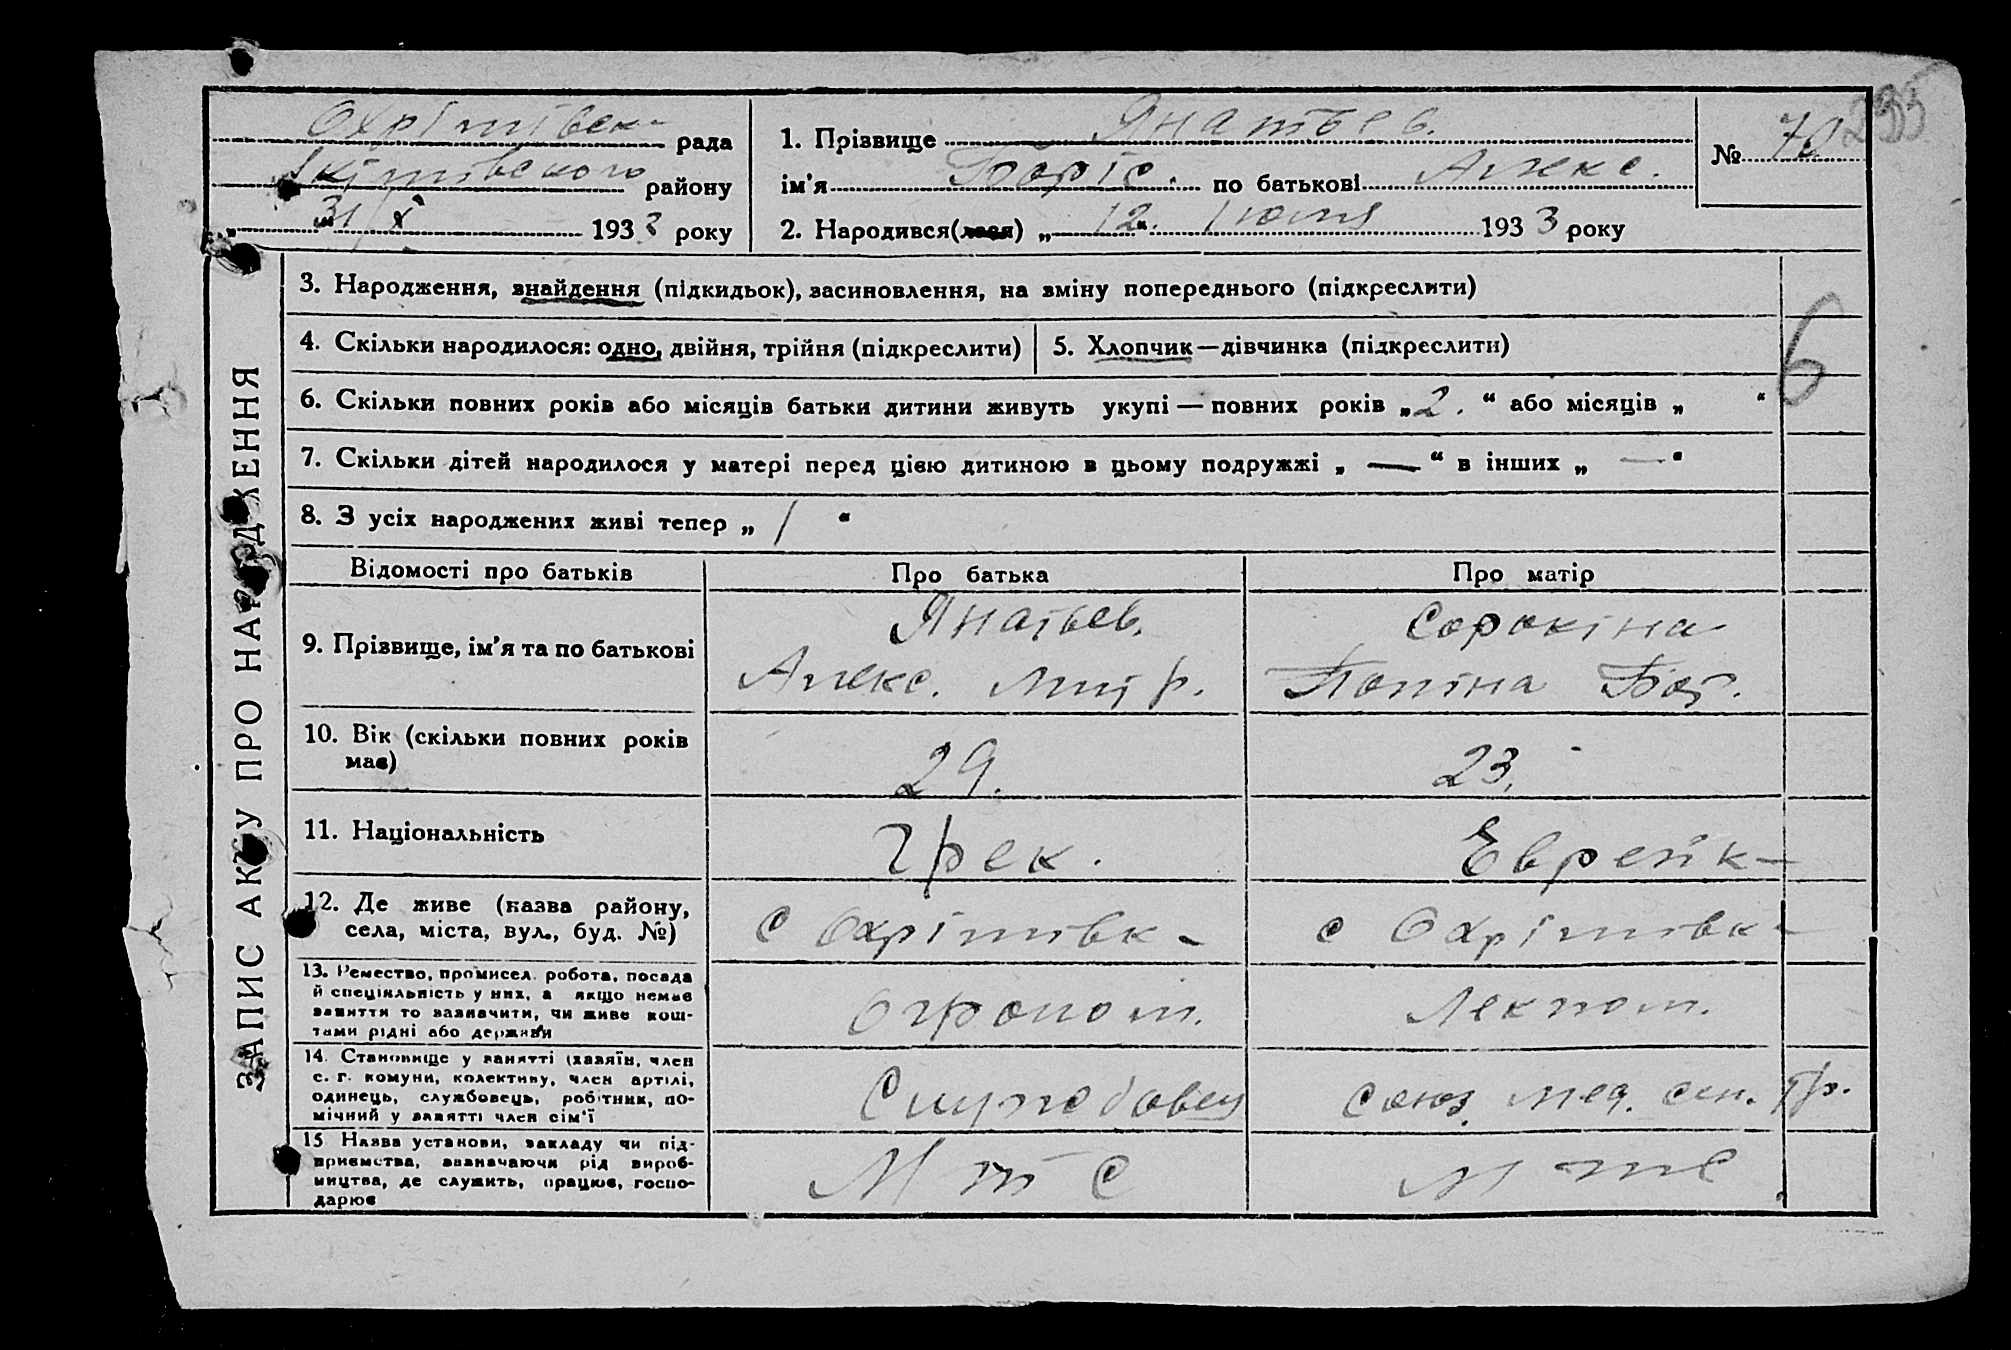 Охрімівськ рада
Якімівського району
„31/X“ 1933 року
1. Прізвище Янатьев.
ім'я Боріс. по батькові Алекс.
2. Народився(лася) „12.“ Іюля 1933 року
№ 70
235
ЗАПИС АКТУ ПРО НАРОДЖЕННЯ
3. Народження, знайдення (підкидьок), засиновлення, на зміну попереднього (підкреслити)
4. Скільки народилося: одно, двійня, трійня (підкреслити)
5. Хлопчик—дівчинка (підкреслити)
6
6. Скільки повних років або місяців батьки дитини живуть укупі — повних років „2.“ або місяців „ “
7. Скільки дітей народилося у матері перед цією дитиною в цьому подружжі „—“ в інших „—“
8. З усіх народжених живі тепер „1“
Відомості про батьків
Про батька
Про матір
9. Прізвище, ім'я та по батькові
Янатьев.
Алекс. Митр.
Сорокіна
10. Вік (скільки повних років
має)
29.
23.
11. Національність
Грек.
Еврейк
12. Де живе (назва району,
села, міста, вул., буд. №)
с Охрімівк
с Охрімівк
13. Ремество, промисел, робота, посада
й спеціяльність у них, а якщо немає
заняття то зазначити, чи живе кош-
тами рідні або держави
Огроном.
Лекпом.
14. Становище у занятті (хазяїн, член
с. г. комуни, колективу, член артілі,
одинець, службовець, робітник, по-
мічний у занятті член сім'ї
Службовец
Союз мед. сан. тр.
15 Назва установи, закладу чи під-
приємства, зазначаючи рід вироб-
ництва, де служить, працює, госпо-
дарює
М т С
М т С